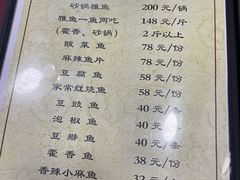 砂锅雅鱼 200元/锅
雅鱼一鱼两吃 148元/斤
(藿香、砂锅) 2斤以上
酸菜鱼 78元/份
麻辣鱼片 78元/份
豆腐鱼 58元/份
家常红烧鱼 58元/份
豆豉鱼 40元/条
泡椒鱼 40元/条
豆瓣鱼 40元/条
藿香鱼 38元/份
香辣小麻鱼 32元/份